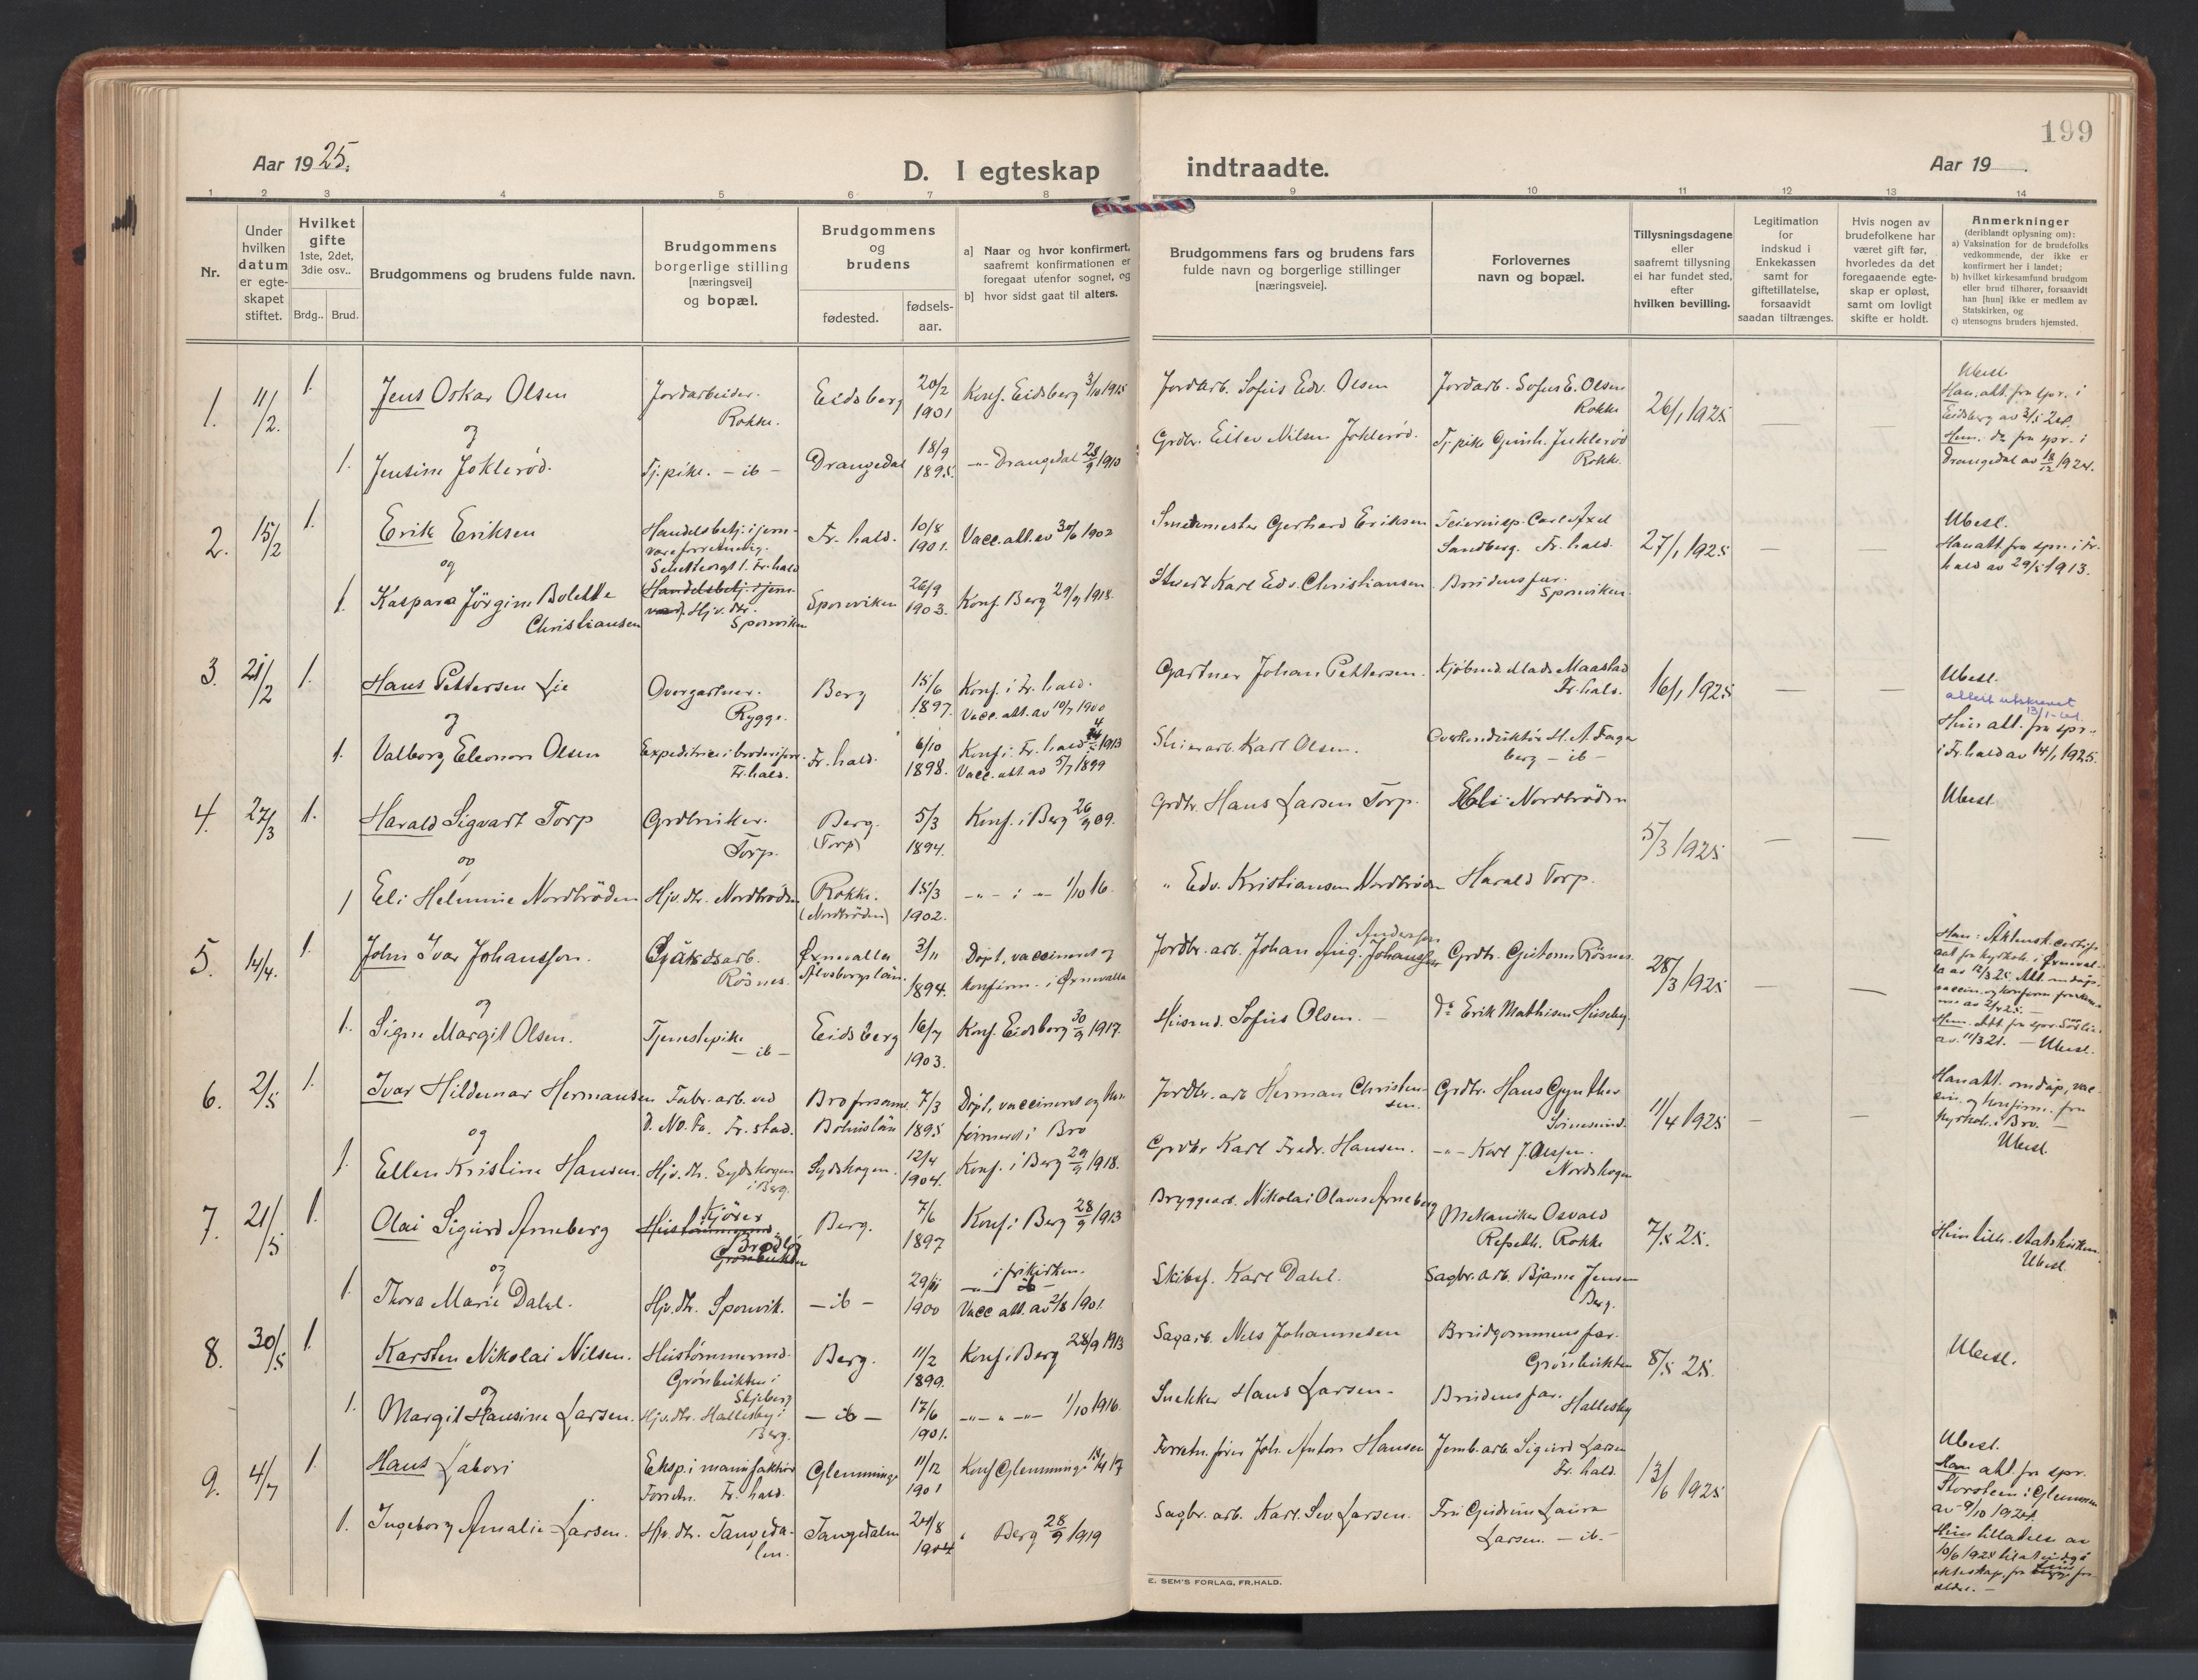 199
Aar 1925.
D. I egteskap indtraadte.
Aar 19
1 2 3 4 5 6 7 8 9 10 11 12 13 14
Nr.
Under
hvilken
datum
er egte-
skapet
stiftet.
Hvilket
gifte
1ste, 2det,
3die osv..
Brdg.. Brud.
Brudgommens og brudens fulde navn.
Brudgommens
borgerlige stilling
[næringsvei]
og bopæl.
Brudgommens
og
brudens
fødested.
fødsels-
aar.
a] Naar og hvor konfirmert.
saafremt konfirmationen er
foregaat utenfor sognet, og
b] hvor sidst gaat til alters.
Brudgommens fars og brudens fars
fulde navn og borgerlige stillinger
[næringsveie].
Forlovernes
navn og bopæl.
Tillysningsdagene
eller
saafremt tillysning
ei har fundet sted,
efter
hvilken bevilling.
Legitimation
for
indskud i
Enkekassen
samt for
giftetillatelse,
forsaavidt
saadan tiltrænges.
Hvis nogen av
brudefolkene har
været gift før,
hvorledes da det
foregaaende egte-
skap er opløst,
samt om lovligt
skifte er holdt.
Anmerkninger
(deriblandt oplysning om):
a) Vaksination for de brudefolks
vedkommende, der ikke er
konfirmert her i landet;
b) hvilket kirkesamfund brudgom
eller brud tilhører, forsaavidt
han [hun] ikke er medlem av
Statskirken, og
c) utensogns bruders hjemsted.
1. 11/2. 1. Jens Oskar Olsen Jordarbeider. Rokke. Eidsberg 20/2 1901 Konf. Eidsberg 3/10 1915 Jordarb. Sofus Edv. Olsen Jordarb. Sofus E. Olsen Rokke 26/1 1925
Ubesl.
Han: att. fra spr. i
Eidsberg av
og
1. Jensine Joklerød. Tj.pike. - ib - Drangedal 18/9 1895. -"- Drangedal 25/9 1910 Grdbr. Eilev Nilsen Joklerød. Tj. pike Gunh. Juklerød Rokk.
Hun. do fra spr. i
Drangedal av 18/12 1924.
2. 15/2 1. Erik Eriksen Handelsbetj. i jern-
vareforretning.
Fr. hald
Fr. hald. 10/8 1901. Vacc. att. av 30/6 1902 Smedmester Gerhard Eriksen Feierinsp. Carl Axel
Sandberg. Fr. hald. 27/1 1925 — —
Ubesl.
Han att. fra spr. i Fr.
hald av 29/5 1913.
og
1. Kaspara Jörgine Bolette
Christiansen
Handelsbetj. i jern-
vare. Hjv. dtr.
Sponviken
Sponviken 26/9 1903. Konf. Berg 29/9 1918. Stuert Karl Edv. Christiansen Brudens far. Sponviken
3. 21/2 1. Hans Pettersen Lie Overgartner. Rygge. Berg 15/6 1897. Konf. i Fr. hald.
Vacc. att. av 10/7 1900
Gartner Johan Pettersen. Kjöbmd. Mads Maastad
Fr. hald. 16/1 1925 — —
Ubesl.
attest utskrevet
13/1-
og
1. Valborg Eleonore Olsen Expeditrice i broderiforr.
Fr. hald. Fr. hald. 6/10 1898. Konf. i Fr. hald 1913
Vacc. att. av 5/7 1899
Stenarb. Karl Olsen. Overkonduktör H. A. Fager
berg - ib -
Hun att. fra spr.
i Fr. hald av 14/1 1925.
4. 27/3 1. Harald Sigvart Torp Grdbruker. Torp. Berg. (Torp) 5/3 1894. Konf. i Berg 26/9 09. Grdbr. Hans Larsen Torp. Eli Nordbröden 5/3 1925 — — Ubesl.
og
1 Eli Helmine Nordbröden Hjv. dtr. Nordbröden Rokke. (Nordbröden) 15/3 1902. -"- i -"- 1/10 16. " Edv. Kristiansen Nordbröden Harald Torp.
5. 14/4. 1. John Ivar Johansson. Gårdsarb. Rösnes. Ørnevalla
Älvsborgslän. 3/11 1894. Døpt, vaccineret og
konfirm. i Ørnevalla
Andersson
Jordbr. arb. Johan Aug. Johansson Grdbr. Guttorm Rösnes. 28/3 1925 —
og
1. Signe Margit Olsen. Tjenestepike - ib - Eidsberg 16/7 1903. Konf. Eidsberg 30/9 1917. Husmd. Sofus Olsen. - do Erik Mathisen Huseby.
av 11/3 21. — Ubesl.
6. 2/5 1. Ivar Hildemar Hermansen Fabr. arb. ved
D. N. Fa. Fr. stad. Bro forsaml.
Bohuslän 7/3 1895 Døpt, vaccineret og kon-
firmeret i Bro
Jordbr. arb. Herman Christen-
sen. Grdbr. Hans Gynther
Svinesund. 11/4 1925 — —
Han att. om dåp, vac-
cin. og konfirm. fra
kyrkoh. i Bro. —
Ubesl.
og
1. Ellen Kristine Hansen. Hjv. dtr. Sydskogen
i Berg. Sydskogen. 12/4 1904. Konf. i Berg 29/9 1918. Grdbr. Karl Fredr. Hansen. -"- Karl J. Olsen.
Nordskogen
7. 21/5 1. Olai Sigurd Arneberg Kjörer
Hustömmermd.
Grönbukten
Berg. 7/6 1897 Konf. i Berg 28/9 1913 Bryggearb. Nikolai Olaves Arneberg Mekaniker Osvald
Rokke 7/5 25.
Hun tilh. statskirken.
Ubesl.
og
1. Thora Marie Dahl. Hjv. dtr. Sponvik. - ib - 29/11 1900 i frikirken.
- ib -
Vacc att. av 2/8 1901.
Skibsf. Karl Dahl. Sagbr. arb. Bjarne Jensen
Berg.
8. 30/5 1. Karsten Nikolai Nilsen. Hustömmermd.
Grönbukten i
Skjeberg Berg. 11/2 1899. Konf. i Berg 28/9 1913 Sagarb. Nils Johannesen Brudgommens far.
Grönbukten 8/5 25. Ubesl.
og
1. Margit Hansine Larsen. Hjv. dtr. Hallesby i
Berg. - ib - 17/6 1901. -"- " -"- 1/10 1916. Snekker Hans Larsen - Brudens far. Hallesby
9. 4/7 1. Hans Labori Eksp. i manufaktur
Forretn. Fr. hald. Glemminge 11/12 1901 Konf Glemminge Forretn. fører Joh. Anton Hansen Jernb. arb. Sigurd Larsen
Fr. hald. 13/6 1925
Ubesl.
Han att. fra spr.
Torsteen i Glemmen
av 9/10 1924.
1. Ingeborg Amalie Larsen. Hjv. dtr. Tangeda-
len. Tangedalen 24/8 1904 " Berg 28/9 1919 Sagbr. arb. Karl Sev. Larsen. Fru Gudrun Laura
Larsen. - ib -
Hun tilladelse av
10/6 1925 til at indgå
ekteskap, fra hendes for-
ældre. —
E. SEM'S FORLAG, FR.HALD.